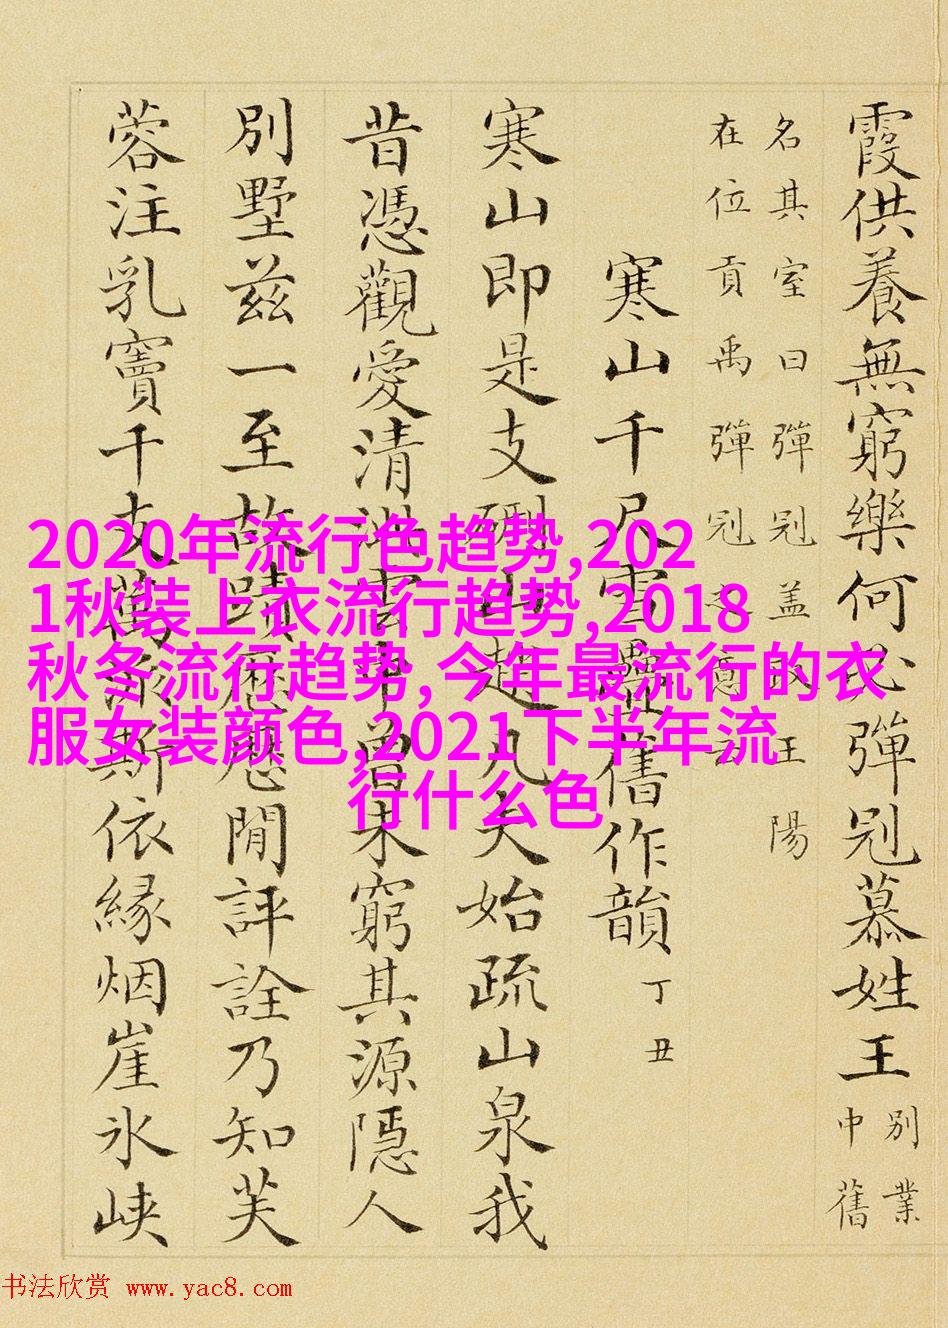 霞供養無窮樂何必彈冠慕姓王
别業
中舊
名其室曰彈冠盖取王陽
在位貢禹彈冠之意云
寒山千尺雪疊舊作韻 丁丑
寒山即是支硎山趙凡夫始疏山泉我
昔憑觀愛清雲曾未窮其源隱人
別墅兹一至故蹟歴歴閒評詮乃知芙
蓉注乳竇千支萬派斯依緣烟崖氷峡
2020年流行色趋势,202
1秋装上衣流行趋势,2018
秋冬流行趋势,今年最流行的衣
服女装颜色,2021下半年流
行什么色
书法欣赏 www.yac8.com